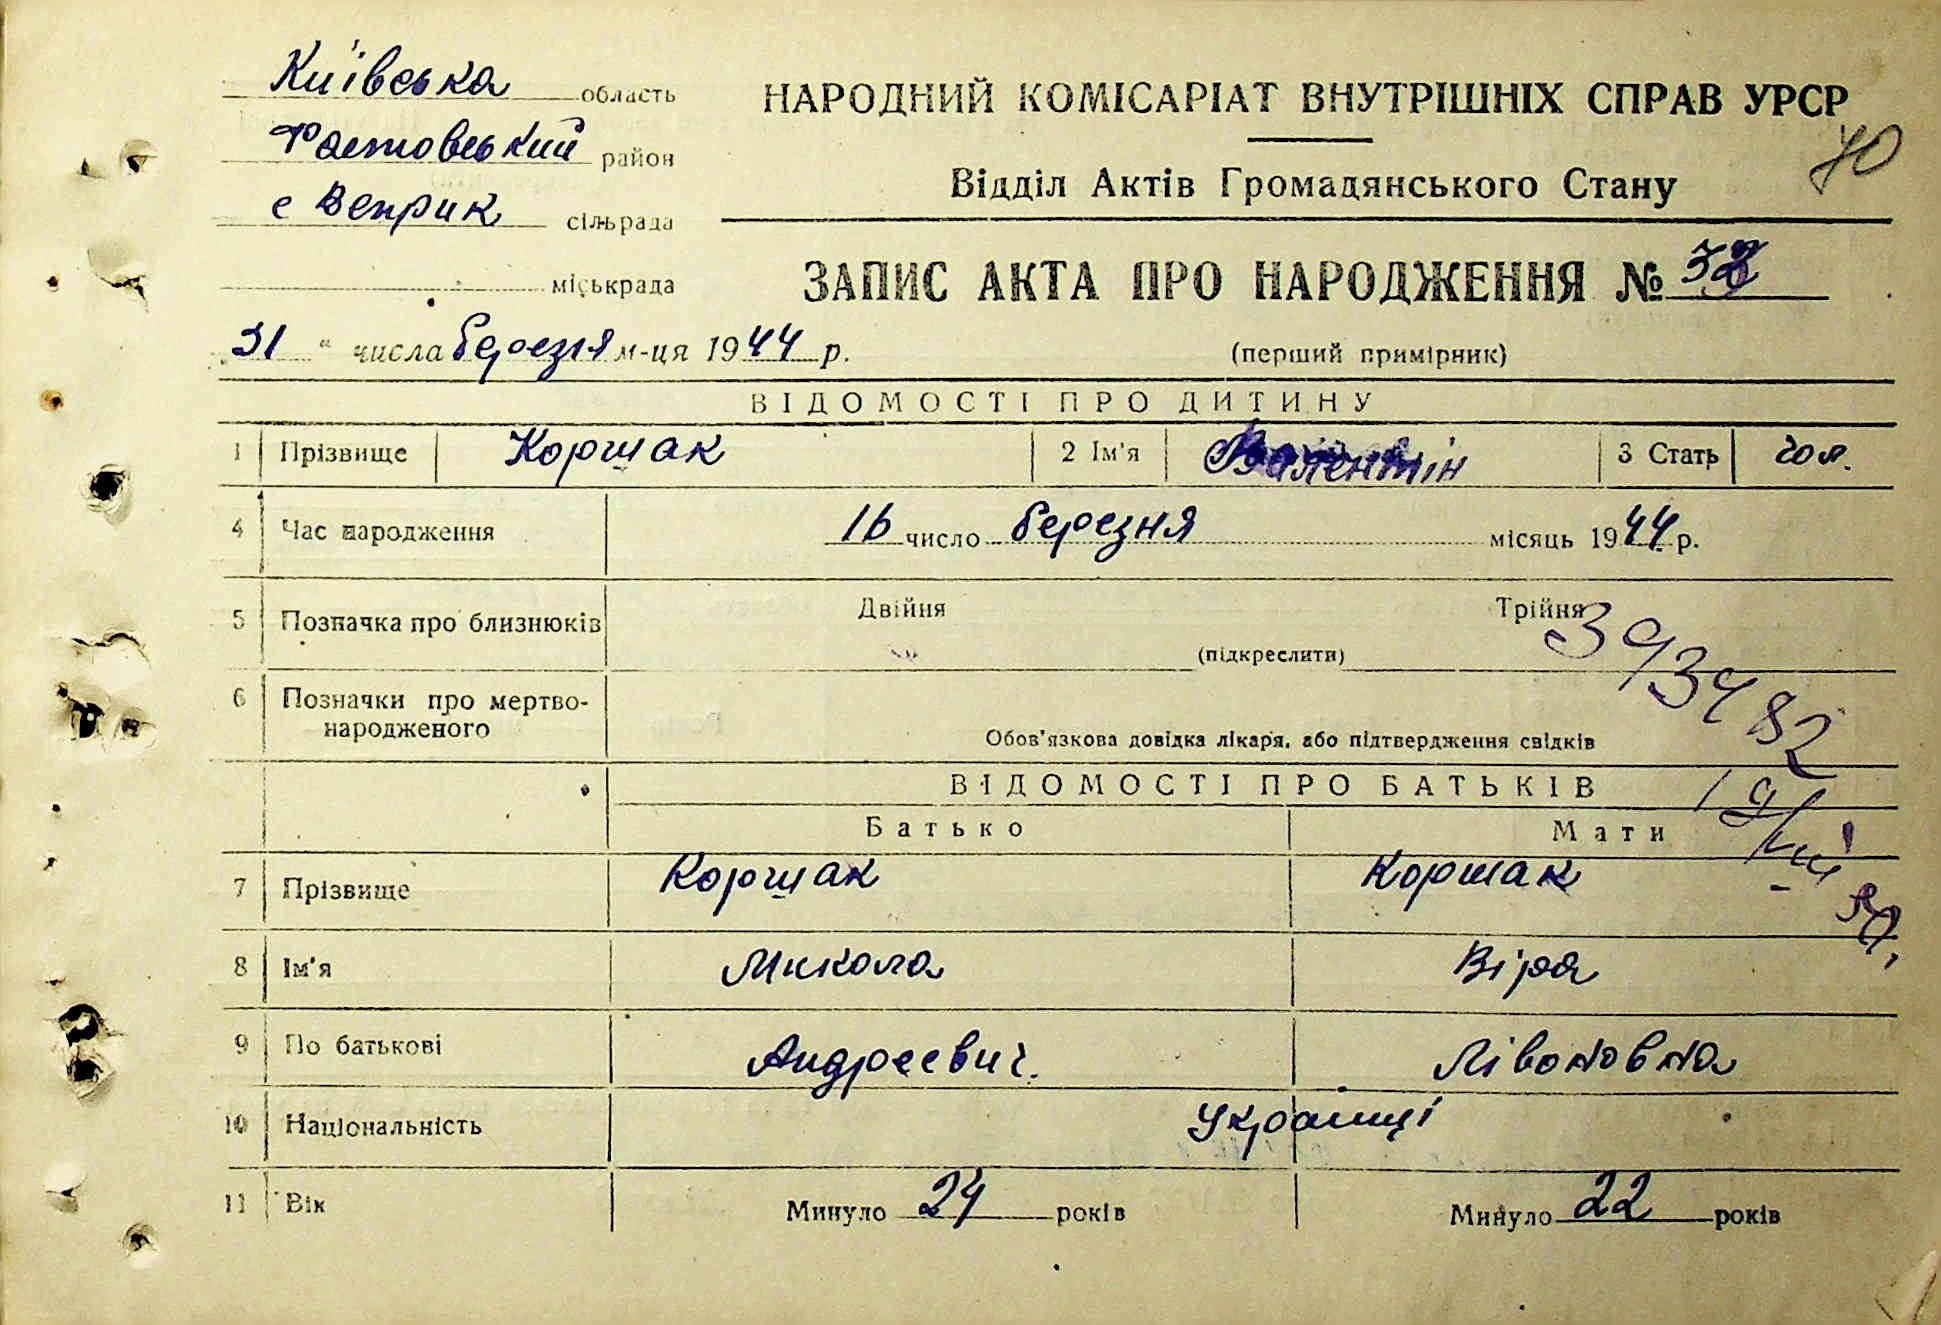 Київська область
Фастовський район
с Веприк сільрада
міськрада
НАРОДНИЙ КОМІСАРІАТ ВНУТРІШНІХ СПРАВ УРСР
70
Відділ Актів Громадянського Стану
ЗАПИС АКТА ПРО НАРОДЖЕННЯ №
31 " числа березня м-ця 1944 р.
(перший примірник)
ВІДОМОСТІ ПРО ДИТИНУ
1 Прізвище Коршак 2 Ім'я Валентін 3 Стать чол.
4 Час народження 16 число березня місяць 1944 р.
5 Позначка про близнюків Двійня Трійня
(підкреслити)
393482
6 Позначки про мертво-
народженого
Обов'язкова довідка лікаря, або підтвердження свідків
ВІДОМОСТІ ПРО БАТЬКІВ
Батько Мати
7 Прізвище Коршак Коршак
8 Ім'я Микола Віра
9 По батькові Андреєвич. Лівоновна
10 Національність Українці
11 Вік Минуло 24 років Минуло 22 років